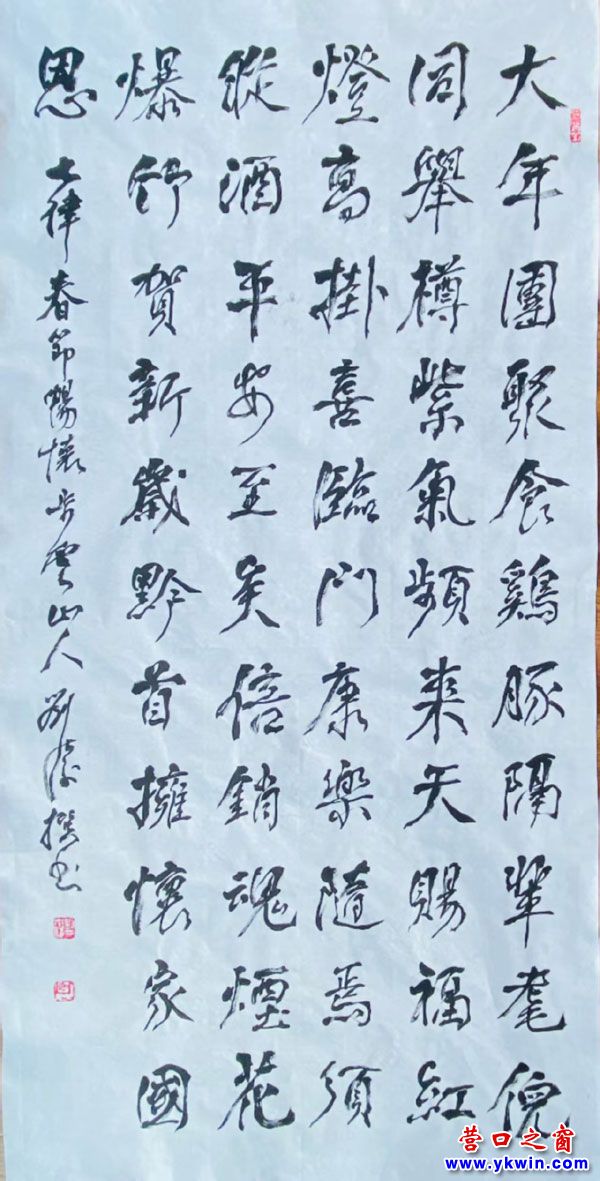 大年團聚食鷄豚隔輩耄倪
同舉樽紫氣頻来天賜福紅
燈高掛喜臨門康樂隨焉須
縱酒平安至矣倍銷魂煙花
爆舒賀新歲黔首擁懷家國
恩
七律春節暢懷步雲山人劉撰書
营口之窗
www.ykwin.com